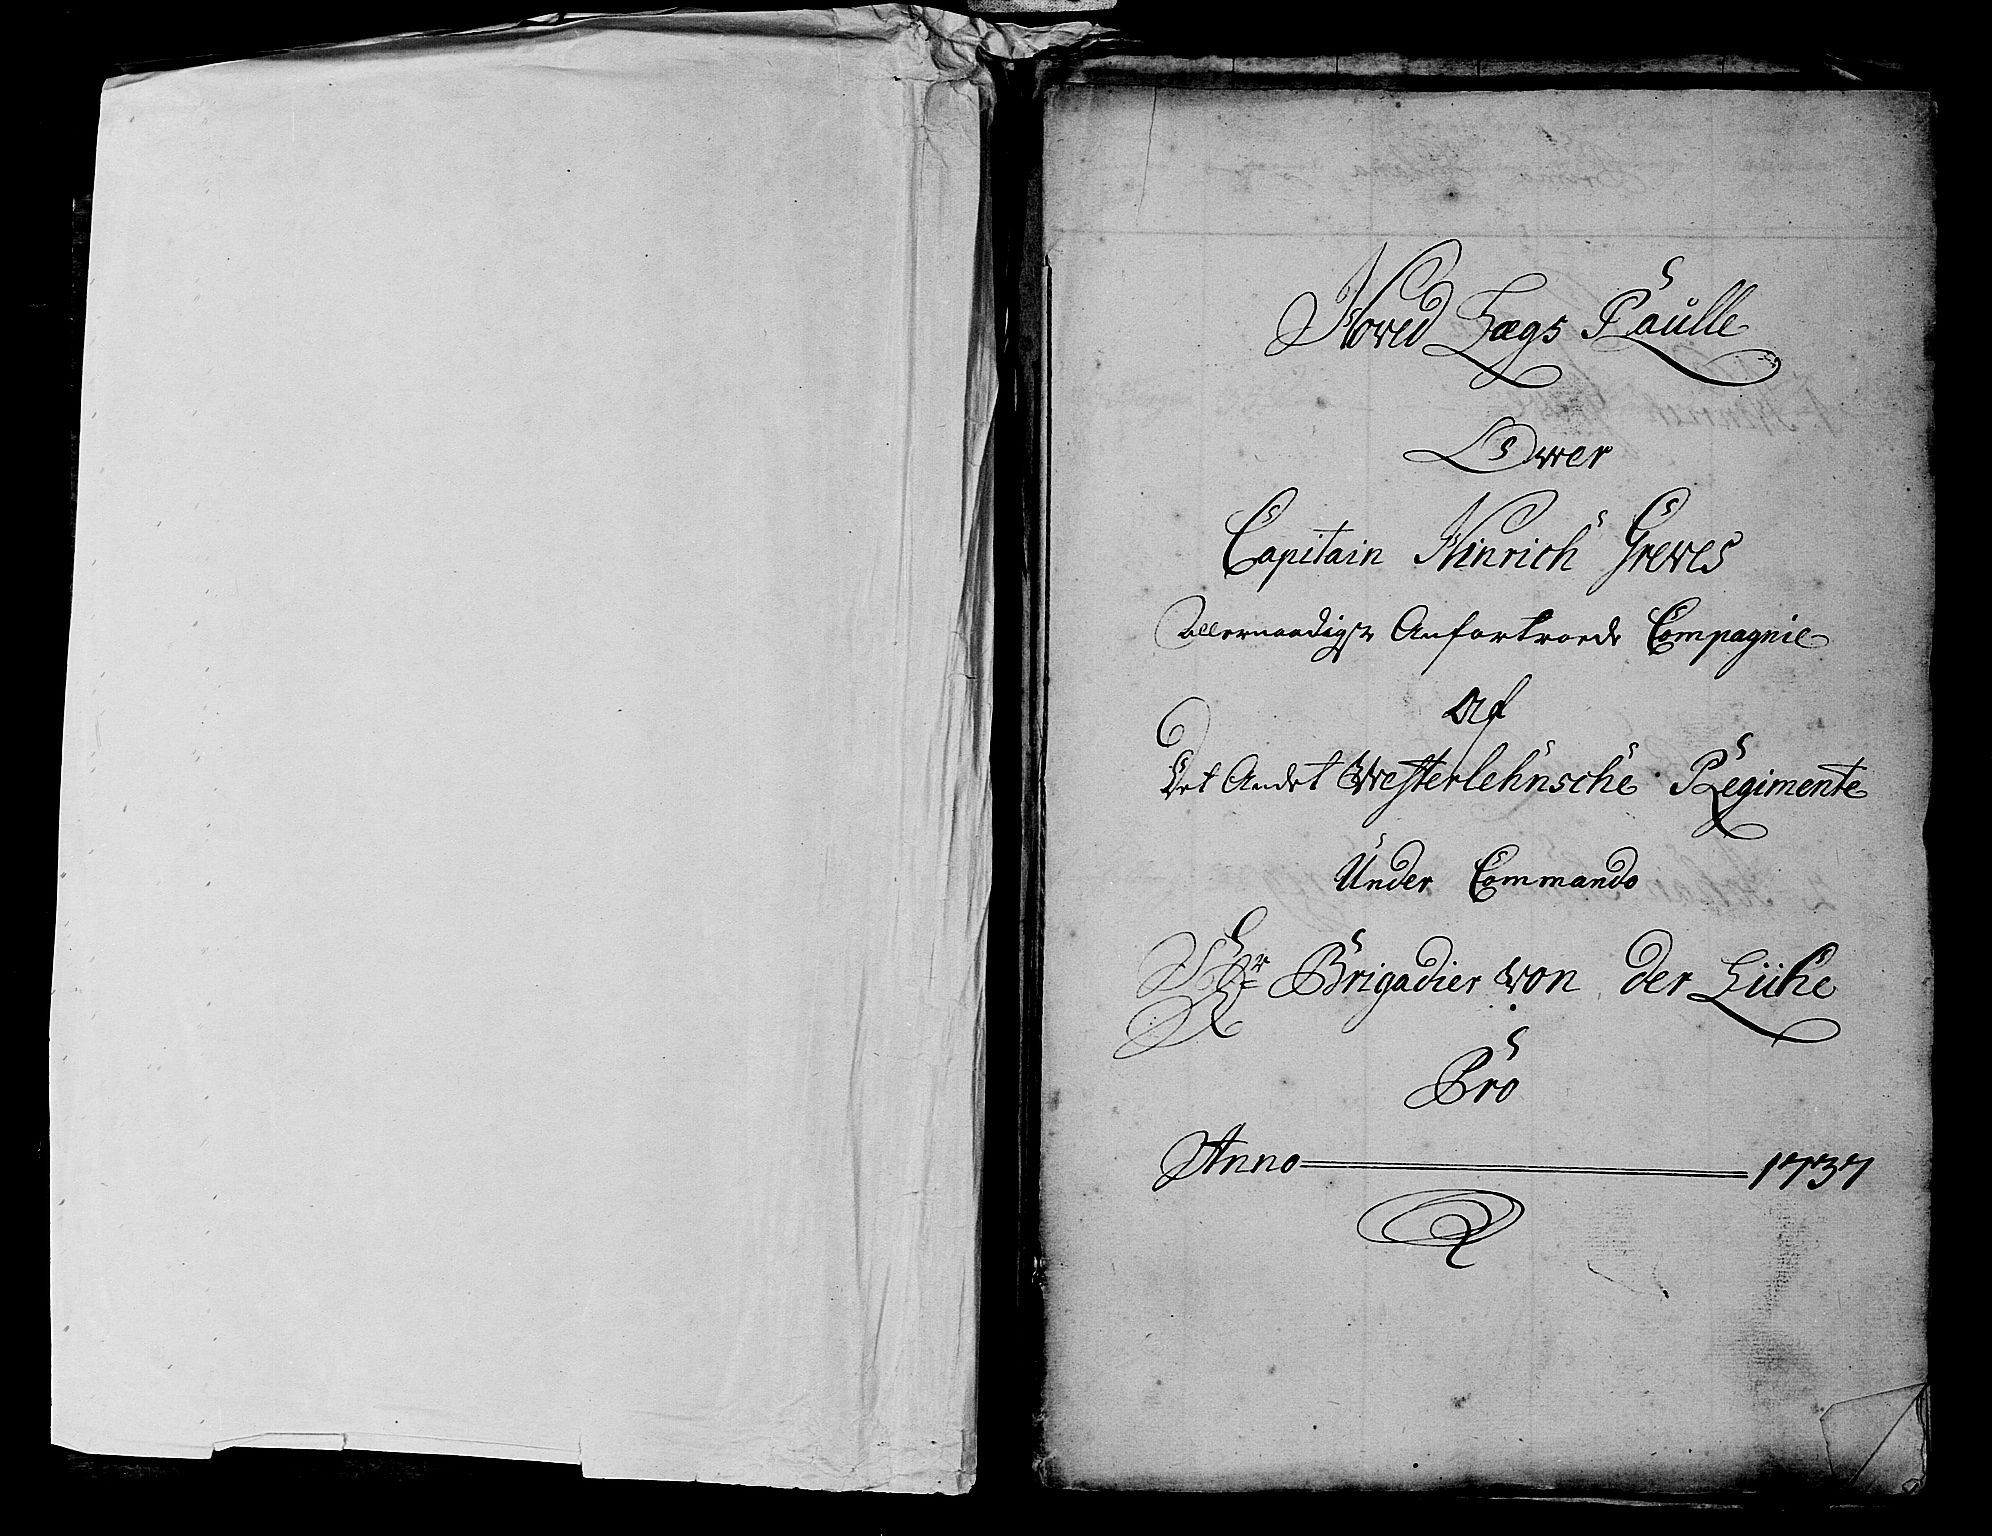 Hoved Lægs Raůlle
Over
Capitain Hinrich Greves
Allernaadigst Anfortroede Compagnie
Af
Det Andet Westerlehnsche Regimente
Under Commando
Hr Brigadier von der Lühe
Pro
Anno 1737